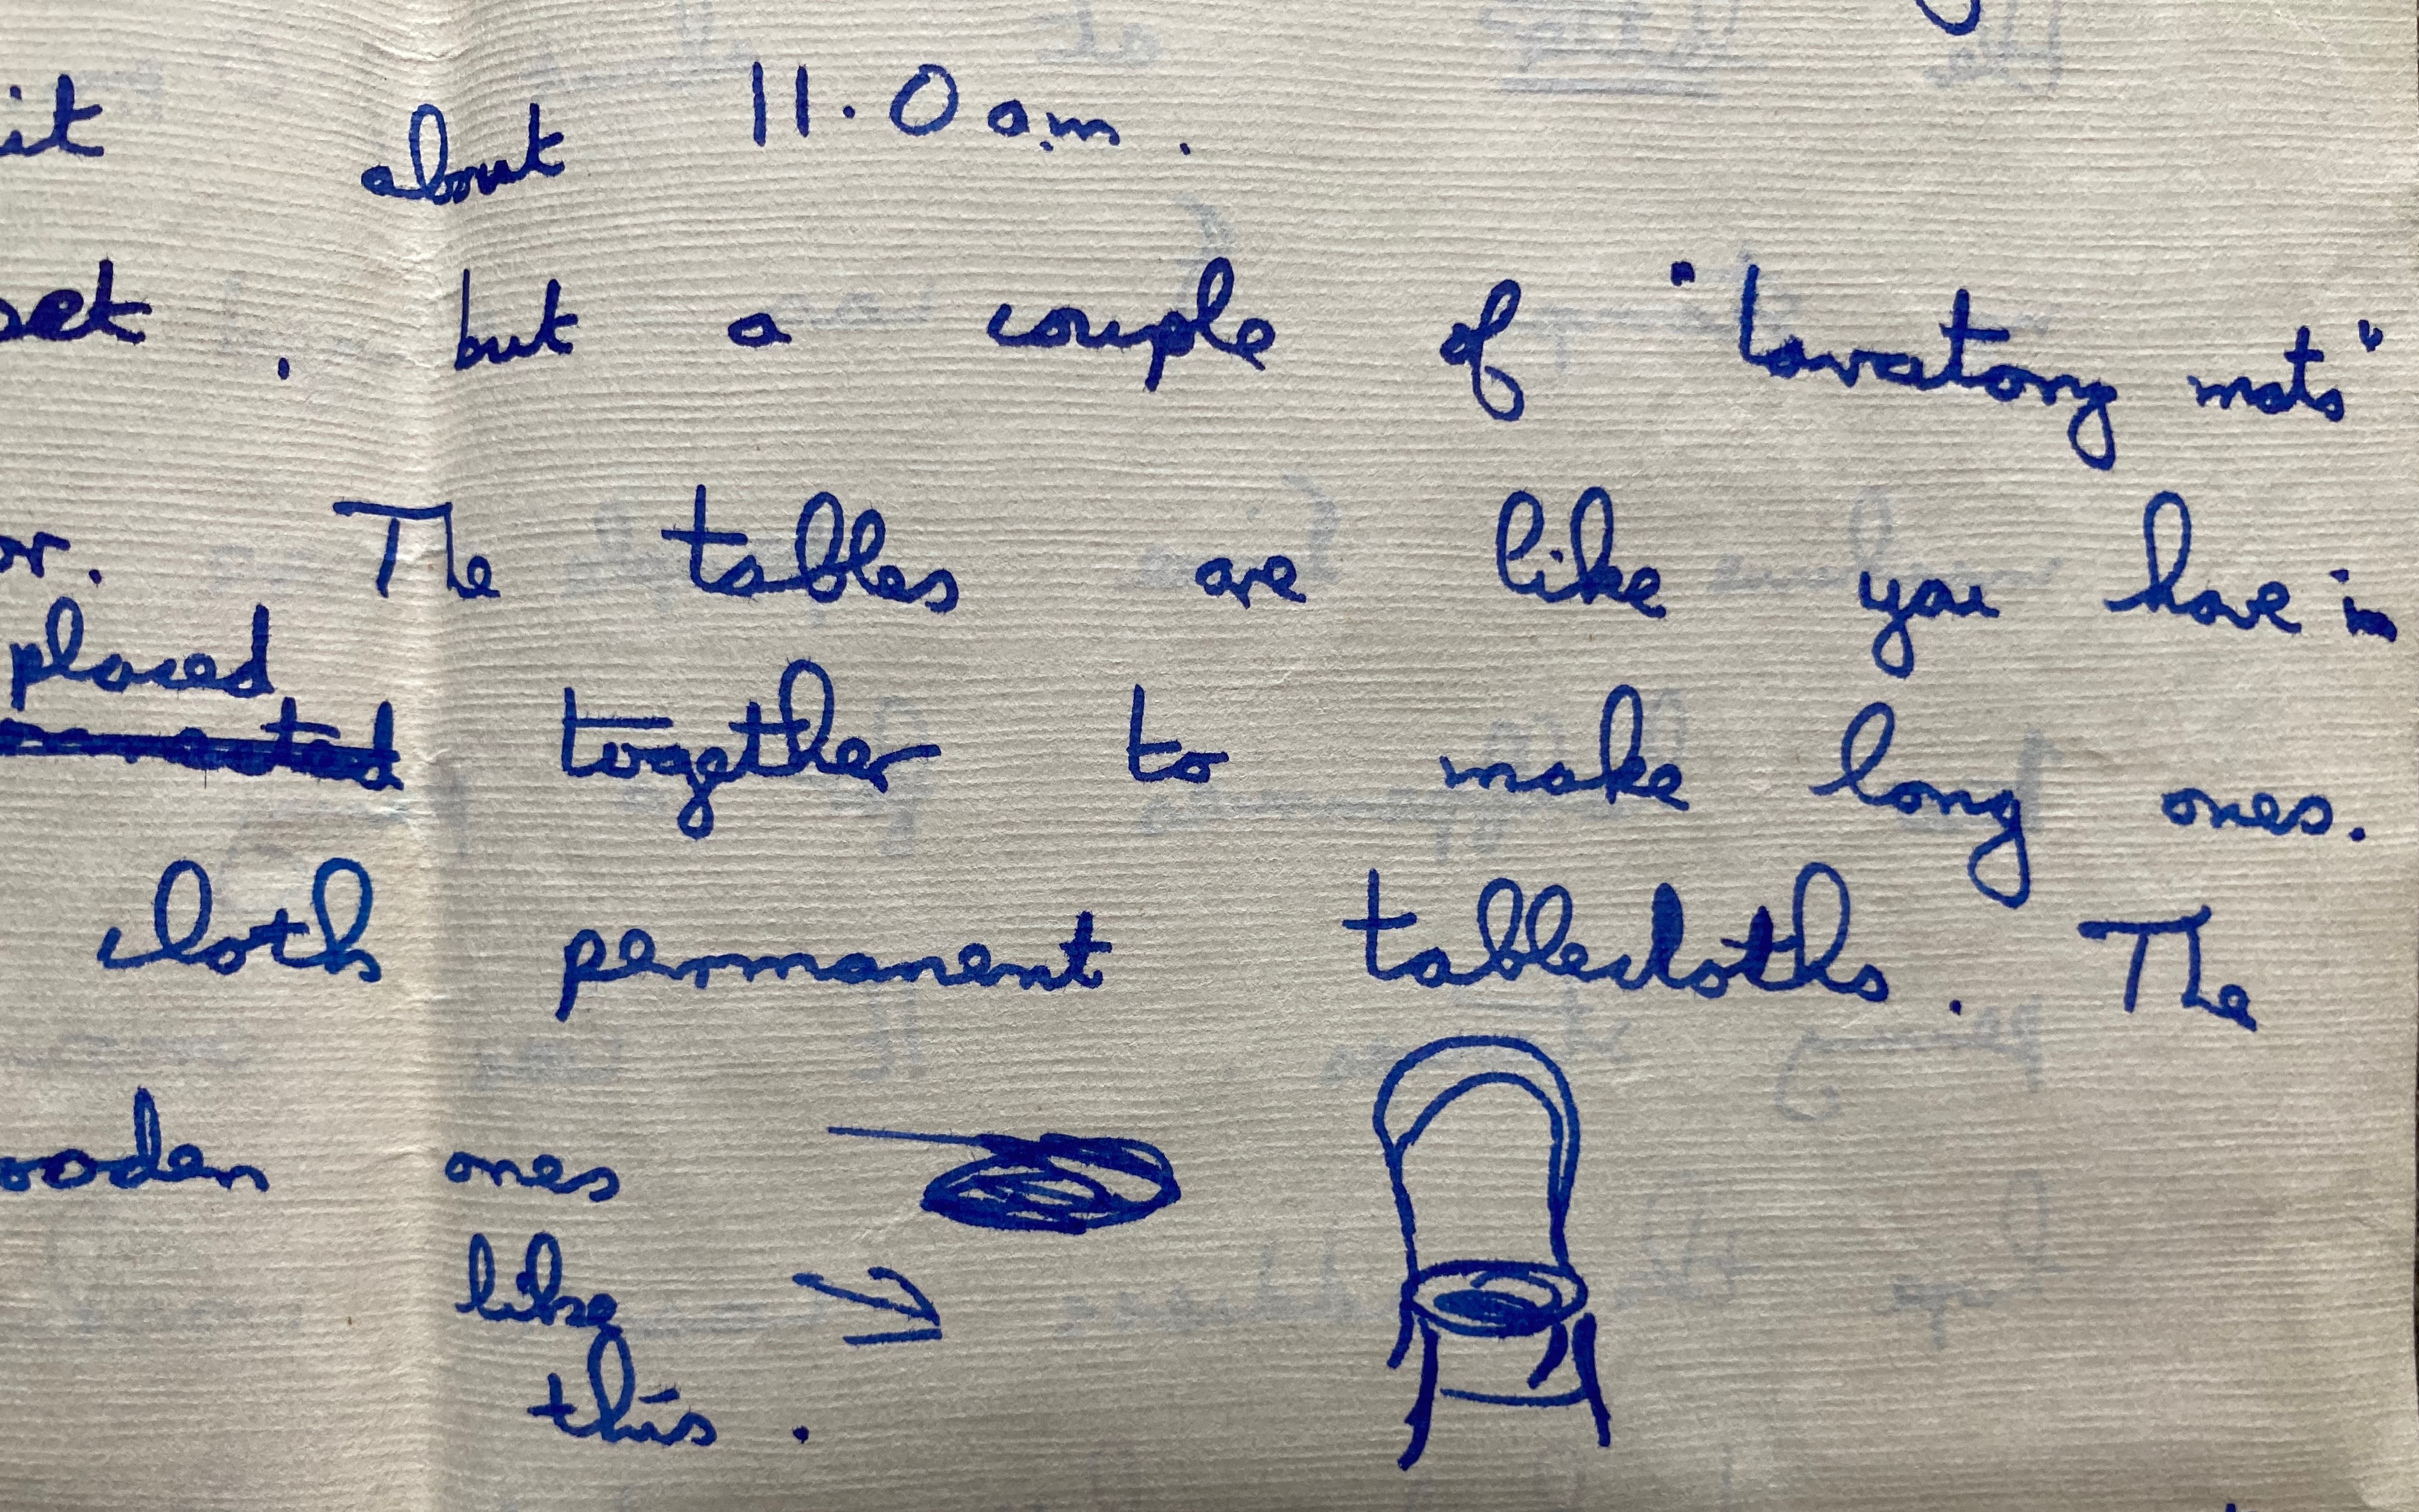 it about 11.0 a.m.
but a couple of "lavatory mats"
The tables are like you have in
placed
together to make long ones.
cloth permanent tablecloths. The
ones
like
this.